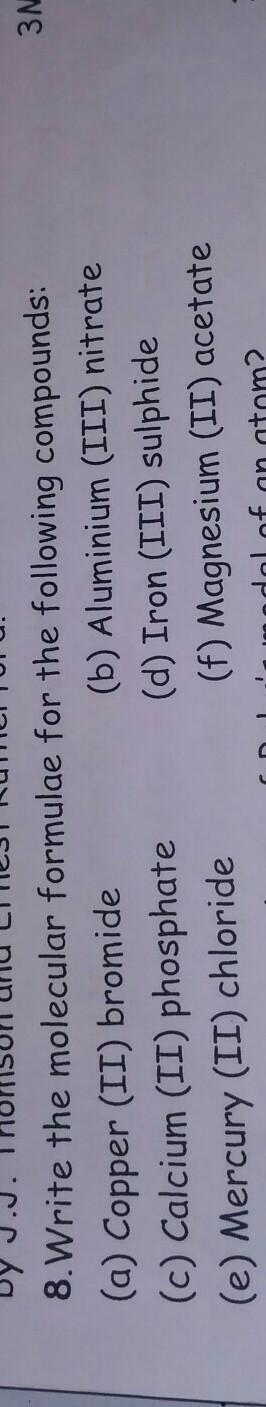 by J.J. Thomson and Ernest Rutherford.
3N
8. Write the molecular formulae for the following compounds:
(a) Copper (II) bromide (b) Aluminium (III) nitrate
(c) Calcium (II) phosphate (d) Iron (III) sulphide
(e) Mercury (II) chloride (f) Magnesium (II) acetate
model of an atom?